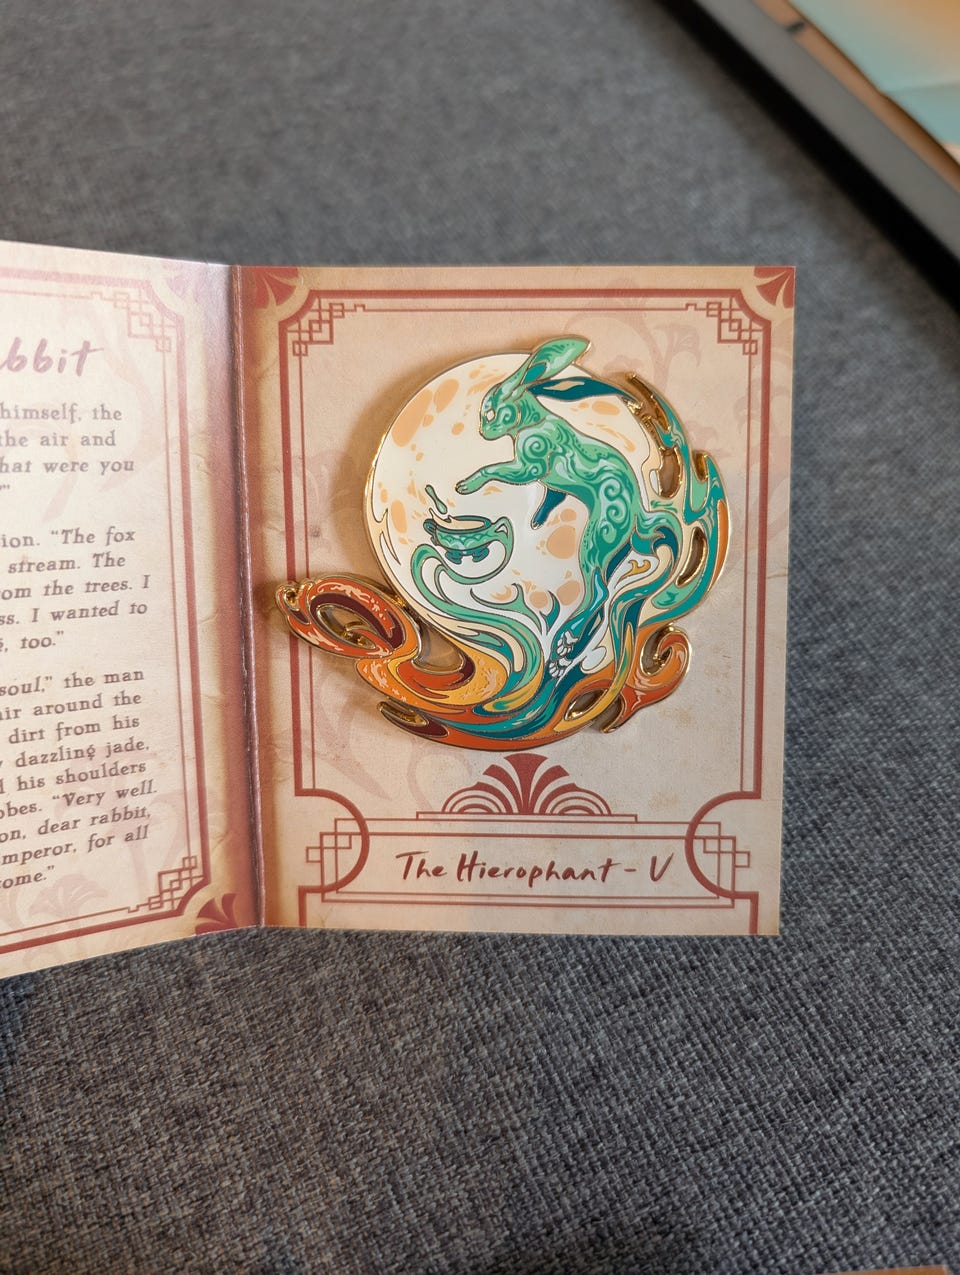 bbit
himself, the
the air and
hat were you
"
ion. "The fox
stream. The
om the trees. I
ss. I wanted to
, too."
soul," the man
air around the
dirt from his
dazzling jade,
his shoulders
obes. "Very well.
on, dear rabbit,
mperor, for all
come."
The Hierophant - V